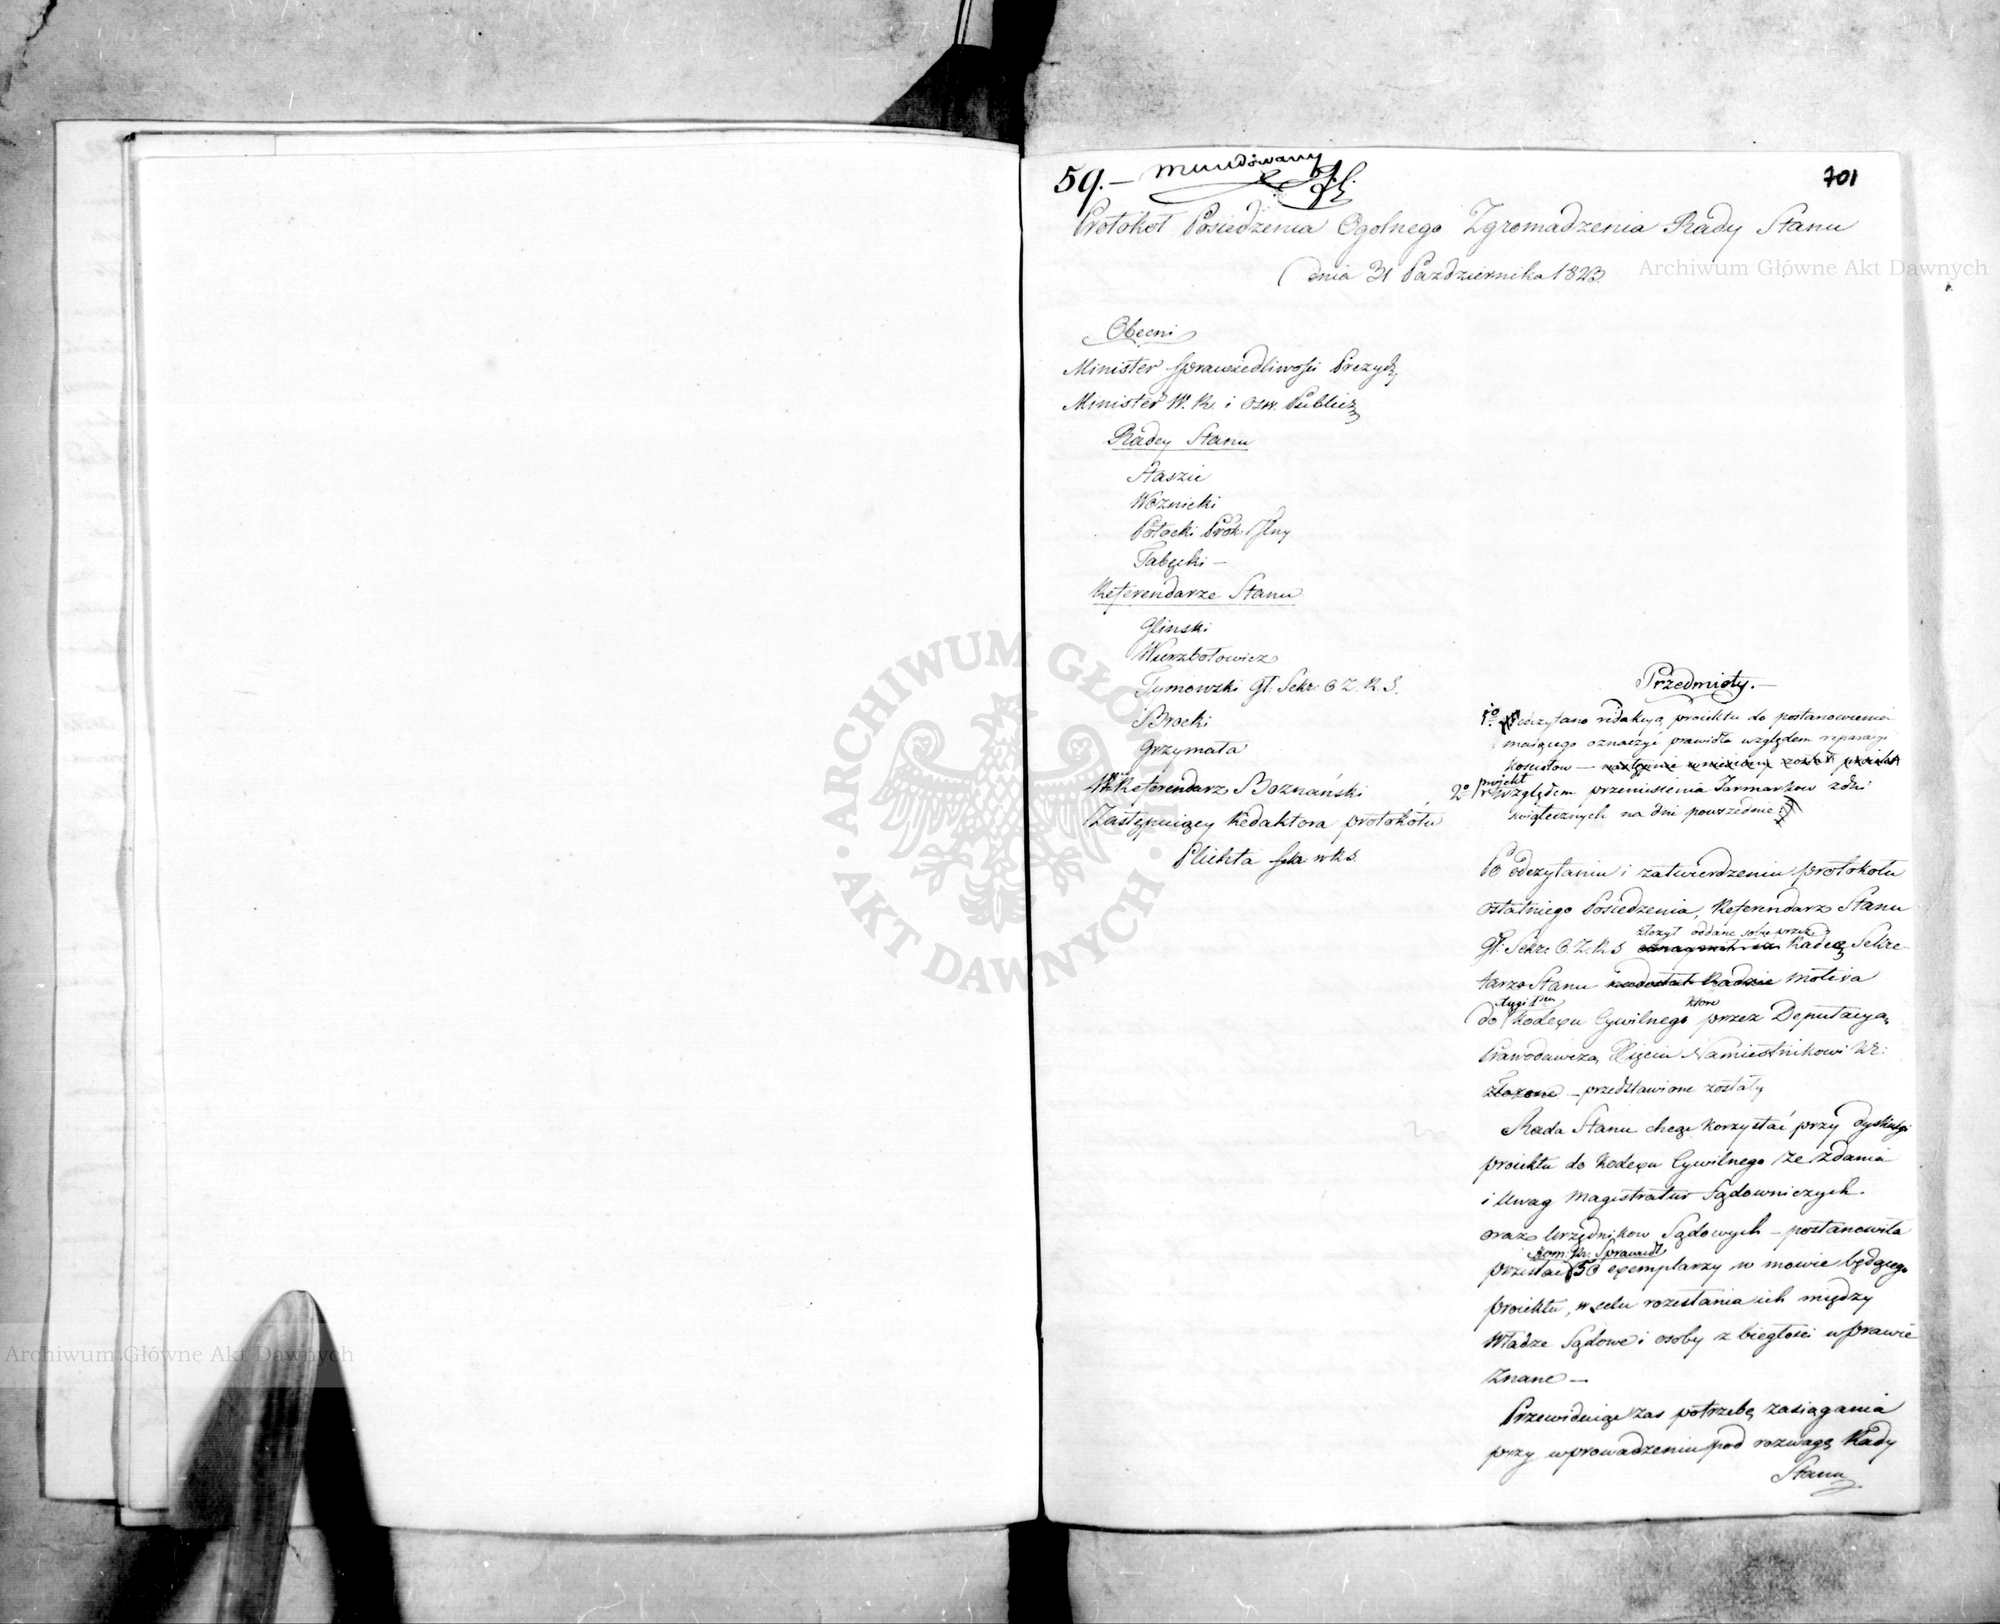 59.— mundowany
701
Protokoł Posiedzenia Ogolnego Zgromadzenia Rady Stanu
dnia 31 Pazdziernika 1823.
Archiwum Główne Akt Dawnych
Obecni
Minister Sprawiedliwości Prezyd.
Minister W. R. i Osw. Publicz.
Radcy Stanu
Staszic
Woznicki
Potocki Prok. Jlny
Tabęcki —
Referendarze Stanu
Glinski
Wierzbołowicz
Tymowski Gł. Sekr. O. Z. R. S.
Brocki
Grzymała
Referendarz Boznański
Zastępuiący Redaktora protokołu
Plichta
Przedmioty.—
1o odczytano redakcyą proiektu do postanowienia
maiącego oznaczyć prawidła względem reparacyi
Kosciołow — następnie wniesiony został proiekt
projekt
2o względem przeniesienia Jarmarkow z dni
swiątecznych na dni powszednie
Po odczytaniu i zatwierdzeniu protokołu
ostatniego Posiedzenia, Referendarz Stanu
złożył oddane sobie przez
Gł. Sekr. O. Z. R. S. Radcę Sekre-
tarza Stanu Motiva
xięgi 1ey
które
do Kodexu Cywilnego przez Deputacyą
Prawodawczą Xięciu Namiestnikowi Kr:
złozone — przedstawione zostały
Rada Stanu chcąc korzystać przy dyskusyi
proiektu do Kodexu Cywilnego ze zdania
i Uwag Magistratur Sądowniczych
oraz Urzędnikow Sądowych — postanowiła
Kom. Rz. Sprawiedl
przesłać 50 exemplarzy w mowie będącego
proiektu, w celu rozesłania ich między
Władze Sądowe i osoby z biegłości w prawie
Znane —
Przewiduiąc zas potrzebę zasiągania
przy wprowadzeniu pod rozwagę Rady
Stanu
ARCHIWUM GŁÓWNE
AKT DAWNYCH
Archiwum Główne Akt Dawnych